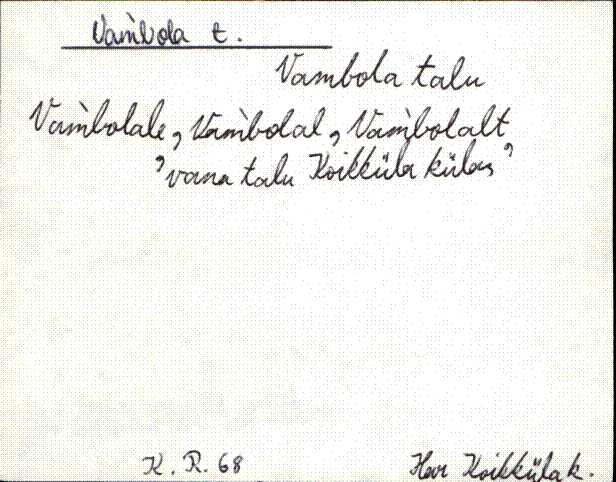 Vam̀bola t.
Vambola talu
Vam̀bolale, Vam̀bolal, Vam̀bolalt
'vana talu Koikküla külas'
K. R. 68
Har Koikküla k.